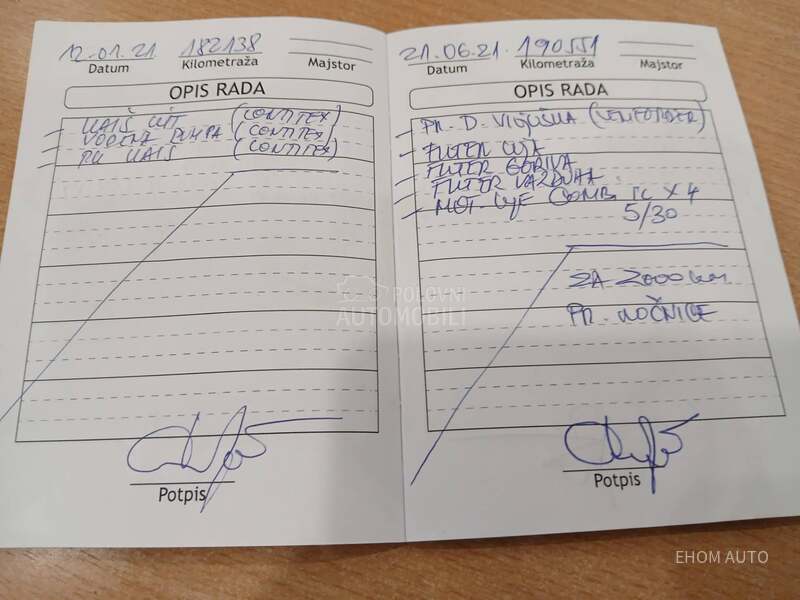 12.01.21 182138
Datum Kilometraža Majstor
OPIS RADA
KAIŠ KIT (CONTITEX)
VODENA PUMPA (CONTITEX)
PK KAIŠ (CONTITEX)
Potpis
21.06.21. 190551
Datum Kilometraža Majstor
OPIS RADA
PR. D. VILJUŠKA (LEMFORDER)
FILTER ULJA
FILTER GORIVA
FILTER VAZDUHA
MOT. ULJE 1L X 4
5/30
ZA 2000 km.
PR. NOČNICE
Potpis
POLOVNI
AUTOMOBILI
EHOM AUTO